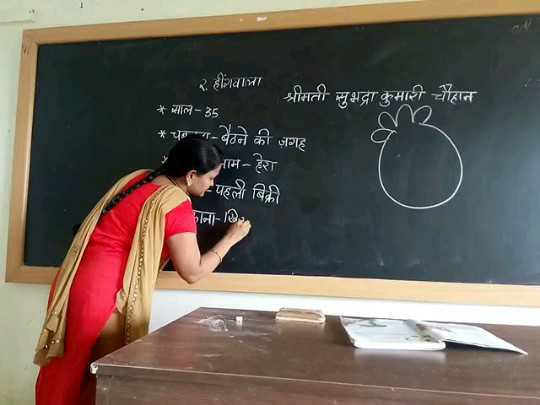 २. हींगवाला
श्रीमती सुभद्रा कुमारी चौहान
* साल - 35
* - बैठने की ज़गह
* - हेरा
पहली बिक्री